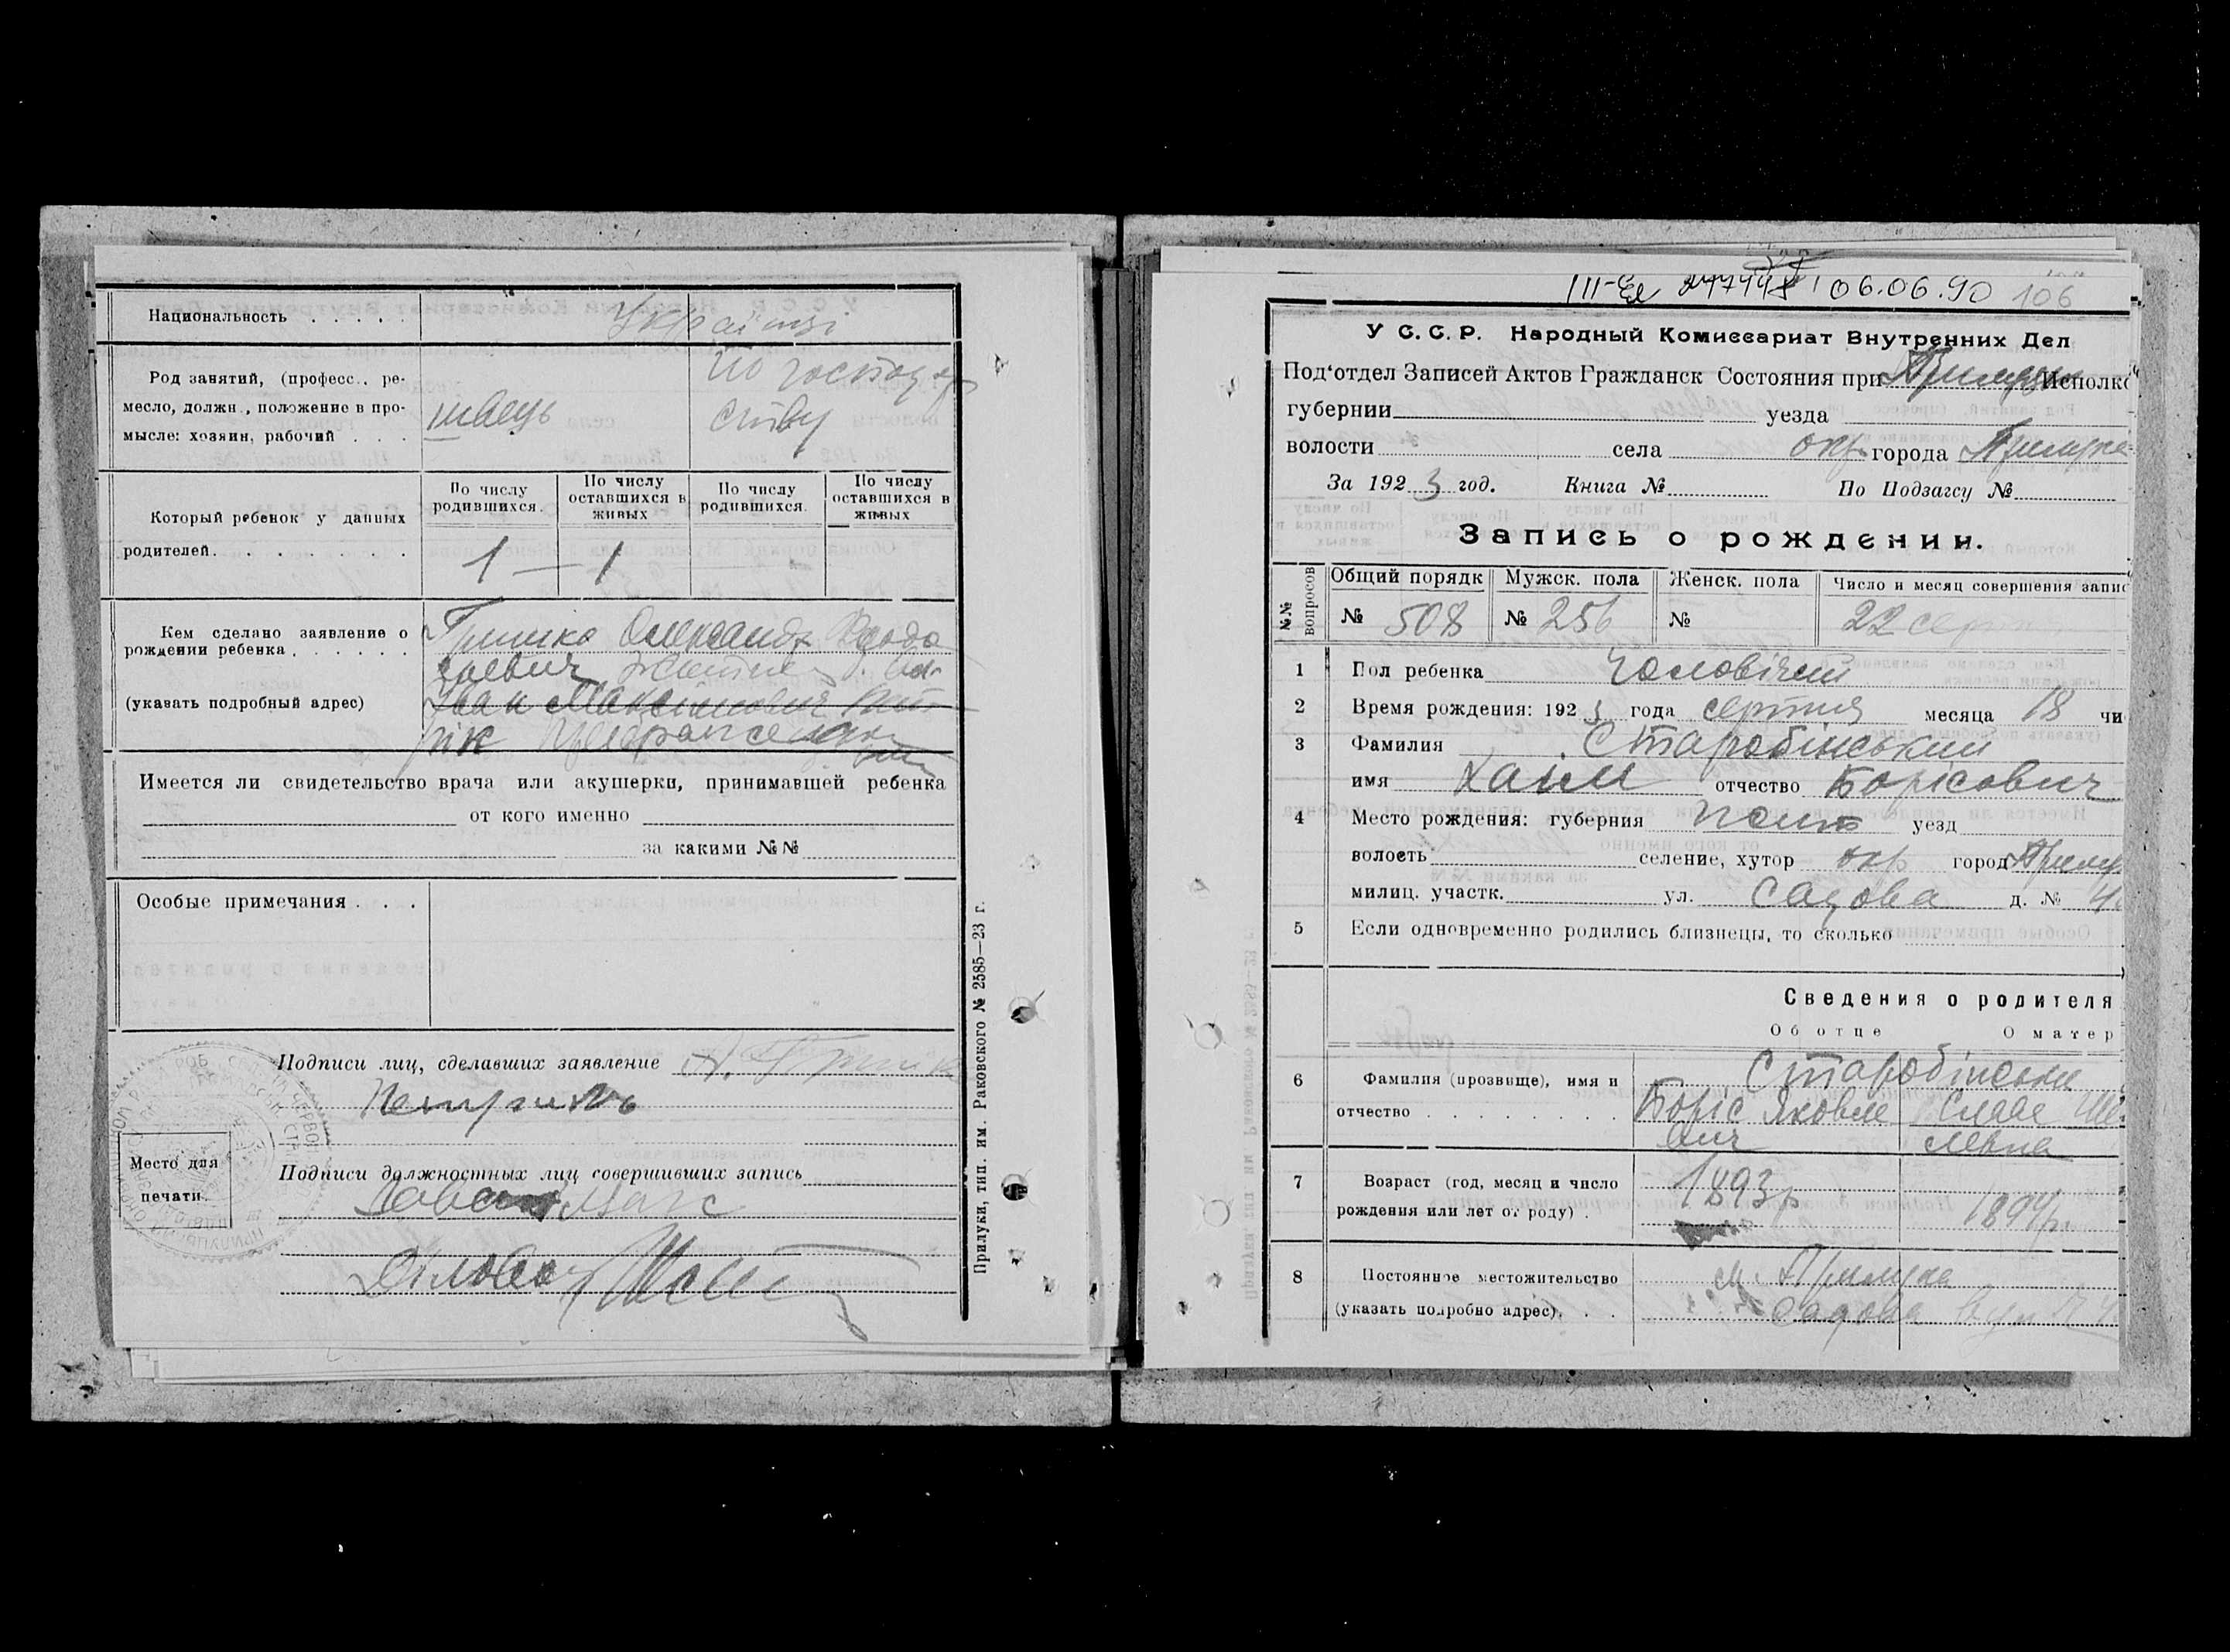 Национальность . . . . .
Українці
Род занятий, (професс., ре-
месло, должн., положение в про-
мысле: хозяин, рабочий . . .
швець
по господар
ству
Который ребенок у данных
родителей. . . . . . .
По числу родившихся.
По числу оставшихся в живых
По числу родившихся.
По числу оставшихся в живых
1 — 1
Кем сделано заявление о
рождении ребенка . . . . . .
(указать подробный адрес)
Олександр
Іван Максимович
Имеется ли свидетельство врача или акушерки, принимавшей ребенка
от кого именно
за какими №№
Особые примечания . . .
Подписи лиц, сделавших заявление
Место для
печати.
Подписи должностных лиц совершивших запись
Діловод
Прилуки, тип. им. Раковского № 2585—23 г.
06.06.90 106
У С. С. Р. Народный Комиссариат Внутренних Дел
Под'отдел Записей Актов Гражданск Состояния при Исполко
губернии уезда
волости села окр. города Прилука
За 192 3 год. Книга № По Подзагсу №
Запись о рождении.
№№ вопросов
Общий порядк
№ 508
Мужск. пола
№ 256
Женск. пола
№
Число и месяц совершения запис
22 серпня
1 Пол ребенка Чоловічий
2 Время рождения: 192 3 года серпня месяца 18 чи
3 Фамилия Старобінський
имя Хаім отчество Борісович
4 Место рождения: губерния Полт уезд
волость селение, хутор окр город Прилу
милиц. участк. ул. Садова д. № 4
5 Если одновременно родились близнецы, то сколько
Сведения о родителя
Об отце О матер
6 Фамилия (прозвище), имя и
отчество . . . . . . . . .
Старобінські
Боріс Яковле
вич
7 Возраст (год, месяц и число
рождения или лет от роду) .
1893р
1894р.
8 Постоянное местожительство
(указать подробно адрес). . .
м. Прилука
Садова вул